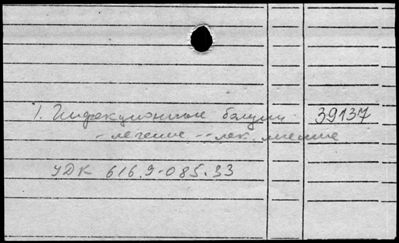 1. Инфекционные болезни 39137
- лечение -- лек.
УДК 616.9-085.33